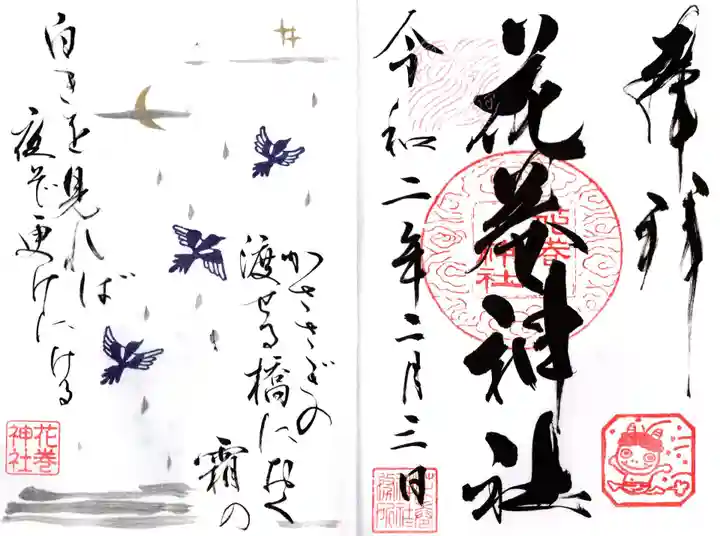 奉拝
花巻神社
令和二年二月三日
花巻
神社
かささぎの
渡せる橋におく
霜の
白きを見れば
夜ぞ更けにける
花巻
神社